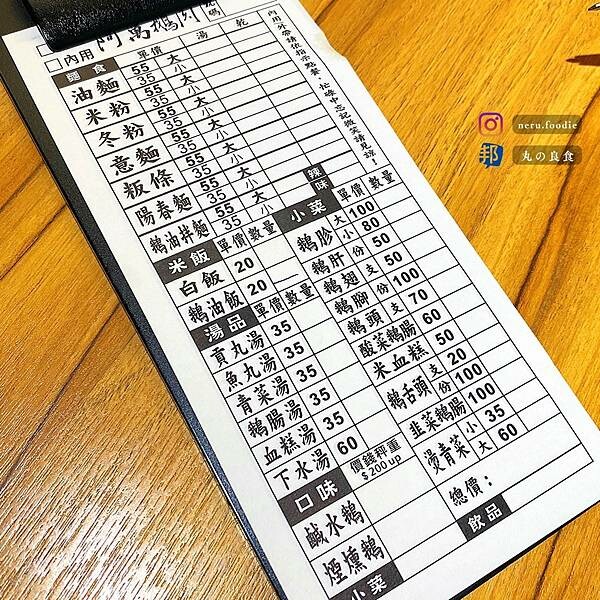 內用
阿萬鵝肉
號碼
麵食 單價 大 小 湯 乾
油麵 55 35 大 小
米粉 55 35 大 小
冬粉 55 35 大 小
意麵 55 35 大 小
粄條 55 35 大 小
陽春麵 55 35 大 小
鵝油拌麵 55 35 大 小
內用外帶請依指示點餐，忙碌中忘記微笑請見諒！
米飯 單價 數量
白飯 20
鵝油飯 20
湯品 單價 數量
貢丸湯 35
魚丸湯 35
青菜湯 35
鵝腸湯 35
血糕湯 35
下水湯 60
口味 價錢秤重 $200up
鹹水鵝
煙燻鵝
小菜
小菜 辣味 單價 數量
鵝胗 大 100 小 80
鵝肝 份 50
鵝翅 支 50
鵝腳 份 100
鵝頭 支 70
酸菜鵝腸 60
米血糕 50
鵝舌頭 支 20 份 100
韭菜鵝腸 100
燙青菜 小 35 大 60
總價：
飲品
neru.foodie
邦 丸の良食